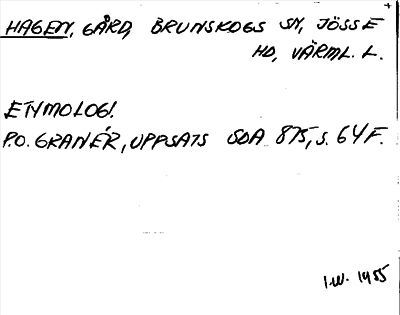 HAGEN, GÅRD, BRUNSKOGS SN, JÖSSE
HD, VÄRML. L.
ETYMOLOGI.
P.O. GRANÉR, UPPSATS SOA 875, S. 64 F.
I.W. 1955